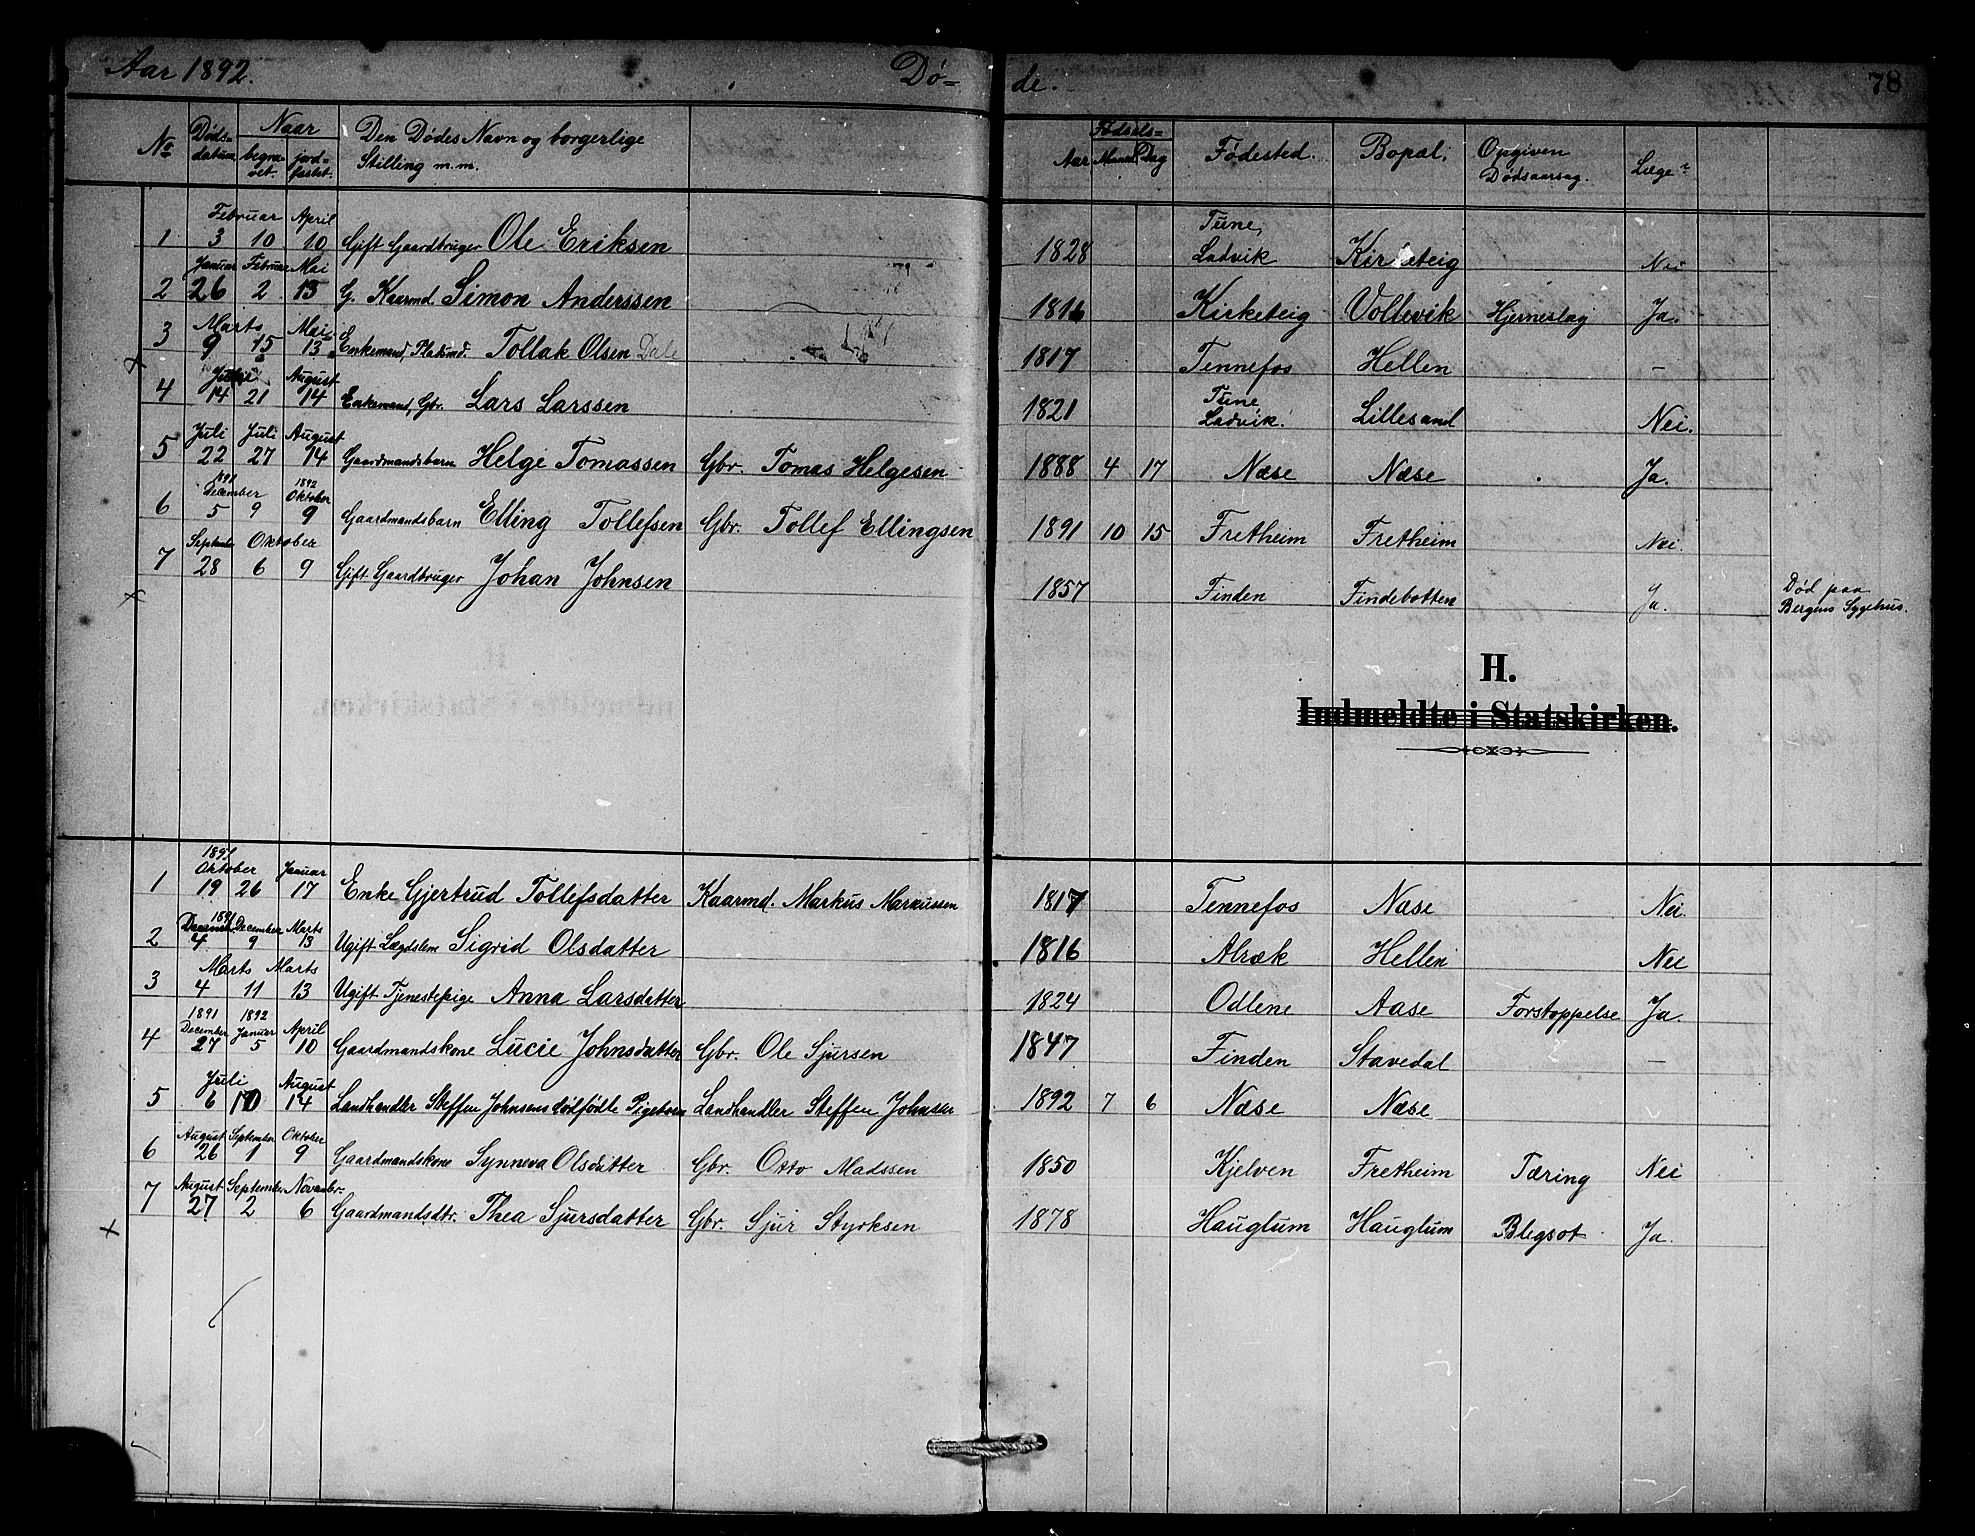 Aar 1892. Dø- de. 78
No Døds-datum. Naar begra-vet. jord-fæstet. Den Dødes Navn og borgerlige Stilling m.m. Fødsels- Aar Maaned Dag Fødested. Bopæl. Opgiven Dødsaarsag. Læge?
1 Februar 3 10 April 10 Gift Gaardbruger Ole Eriksen 1828 Tune, Ladvik Kirketeig Nei
2 Januar 26 Februar 2 Mai 15 G. Kaarmd. Simon Anderssen 1816 Kirketeig Vollevik Hjerneslag Ja.
3 Marts 9 15 Mai 13 Enkemand, Pladsmd. Tollak Olsen Dale 1817 Tennefos Hellen —
4 Juli 14 21 August 14 Enkemand, Gbr. Lars Larssen 1821 Tune Ladvik. Lillesand Nei.
5 Juli 22 Juli 27 August 14 Gaardmandsbarn Helge Tomassen Gbr. Tomas Helgesen 1888 4 17 Næse Næse Ja.
6 1891 December 5 9 1892 Oktober 9 Gaardmandsbarn Elling Tollefsen Gbr. Tollef Ellingsen 1891 10 15 Fretheim Fretheim Nei.
7 September 28 Oktober 6 9 Gift Gaardbruger Johan Johnsen 1857 Finden Findebotten Ja. Død paa Bergens Sygehus.
H.
Indmeldte i Statskirken.
1 1891 Oktober 19 26 Januar 17 Enke Gjertrud Tollefsdatter Kaarmd. Markus Markussen 1817 Tennefos Næse Nei.
2 1891 December 4 December 9 Marts 13 Ugift Lægdslem Sigrid Olsdatter 1816 Alræk Hellen Nei
3 Marts 4 11 Marts 13 Ugift Tjenestepige Anna Larsdatter 1824 Odlene Aase Forstoppelse Ja.
4 1891 December 27 1892 Januar 5 April 10 Gaardmandskone Lucie Johnsdatter Gbr. Ole Sjursen 1847 Finden Stavedal —
5 Juli 6 10 August 14 Landhandler Steffen Johnsens dødfødte Pigebarn Landhandler Steffen Johnsen 1892 7 6 Næse Næse
6 August 26 September 1 Oktober 9 Gaardmandskone Synneva Olsdatter Gbr. Otto Madssen 1850 Kjelven Fretheim Tæring Nei
7 August 27 September 2 Novembr. 6 Gaardmandsdtr. Thea Sjursdatter Gbr. Sjur Styrksen 1878 Hauglum Hauglum Blegsot Ja.